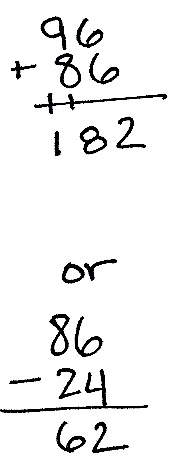 96
+ 86
182
or
86
- 24
62